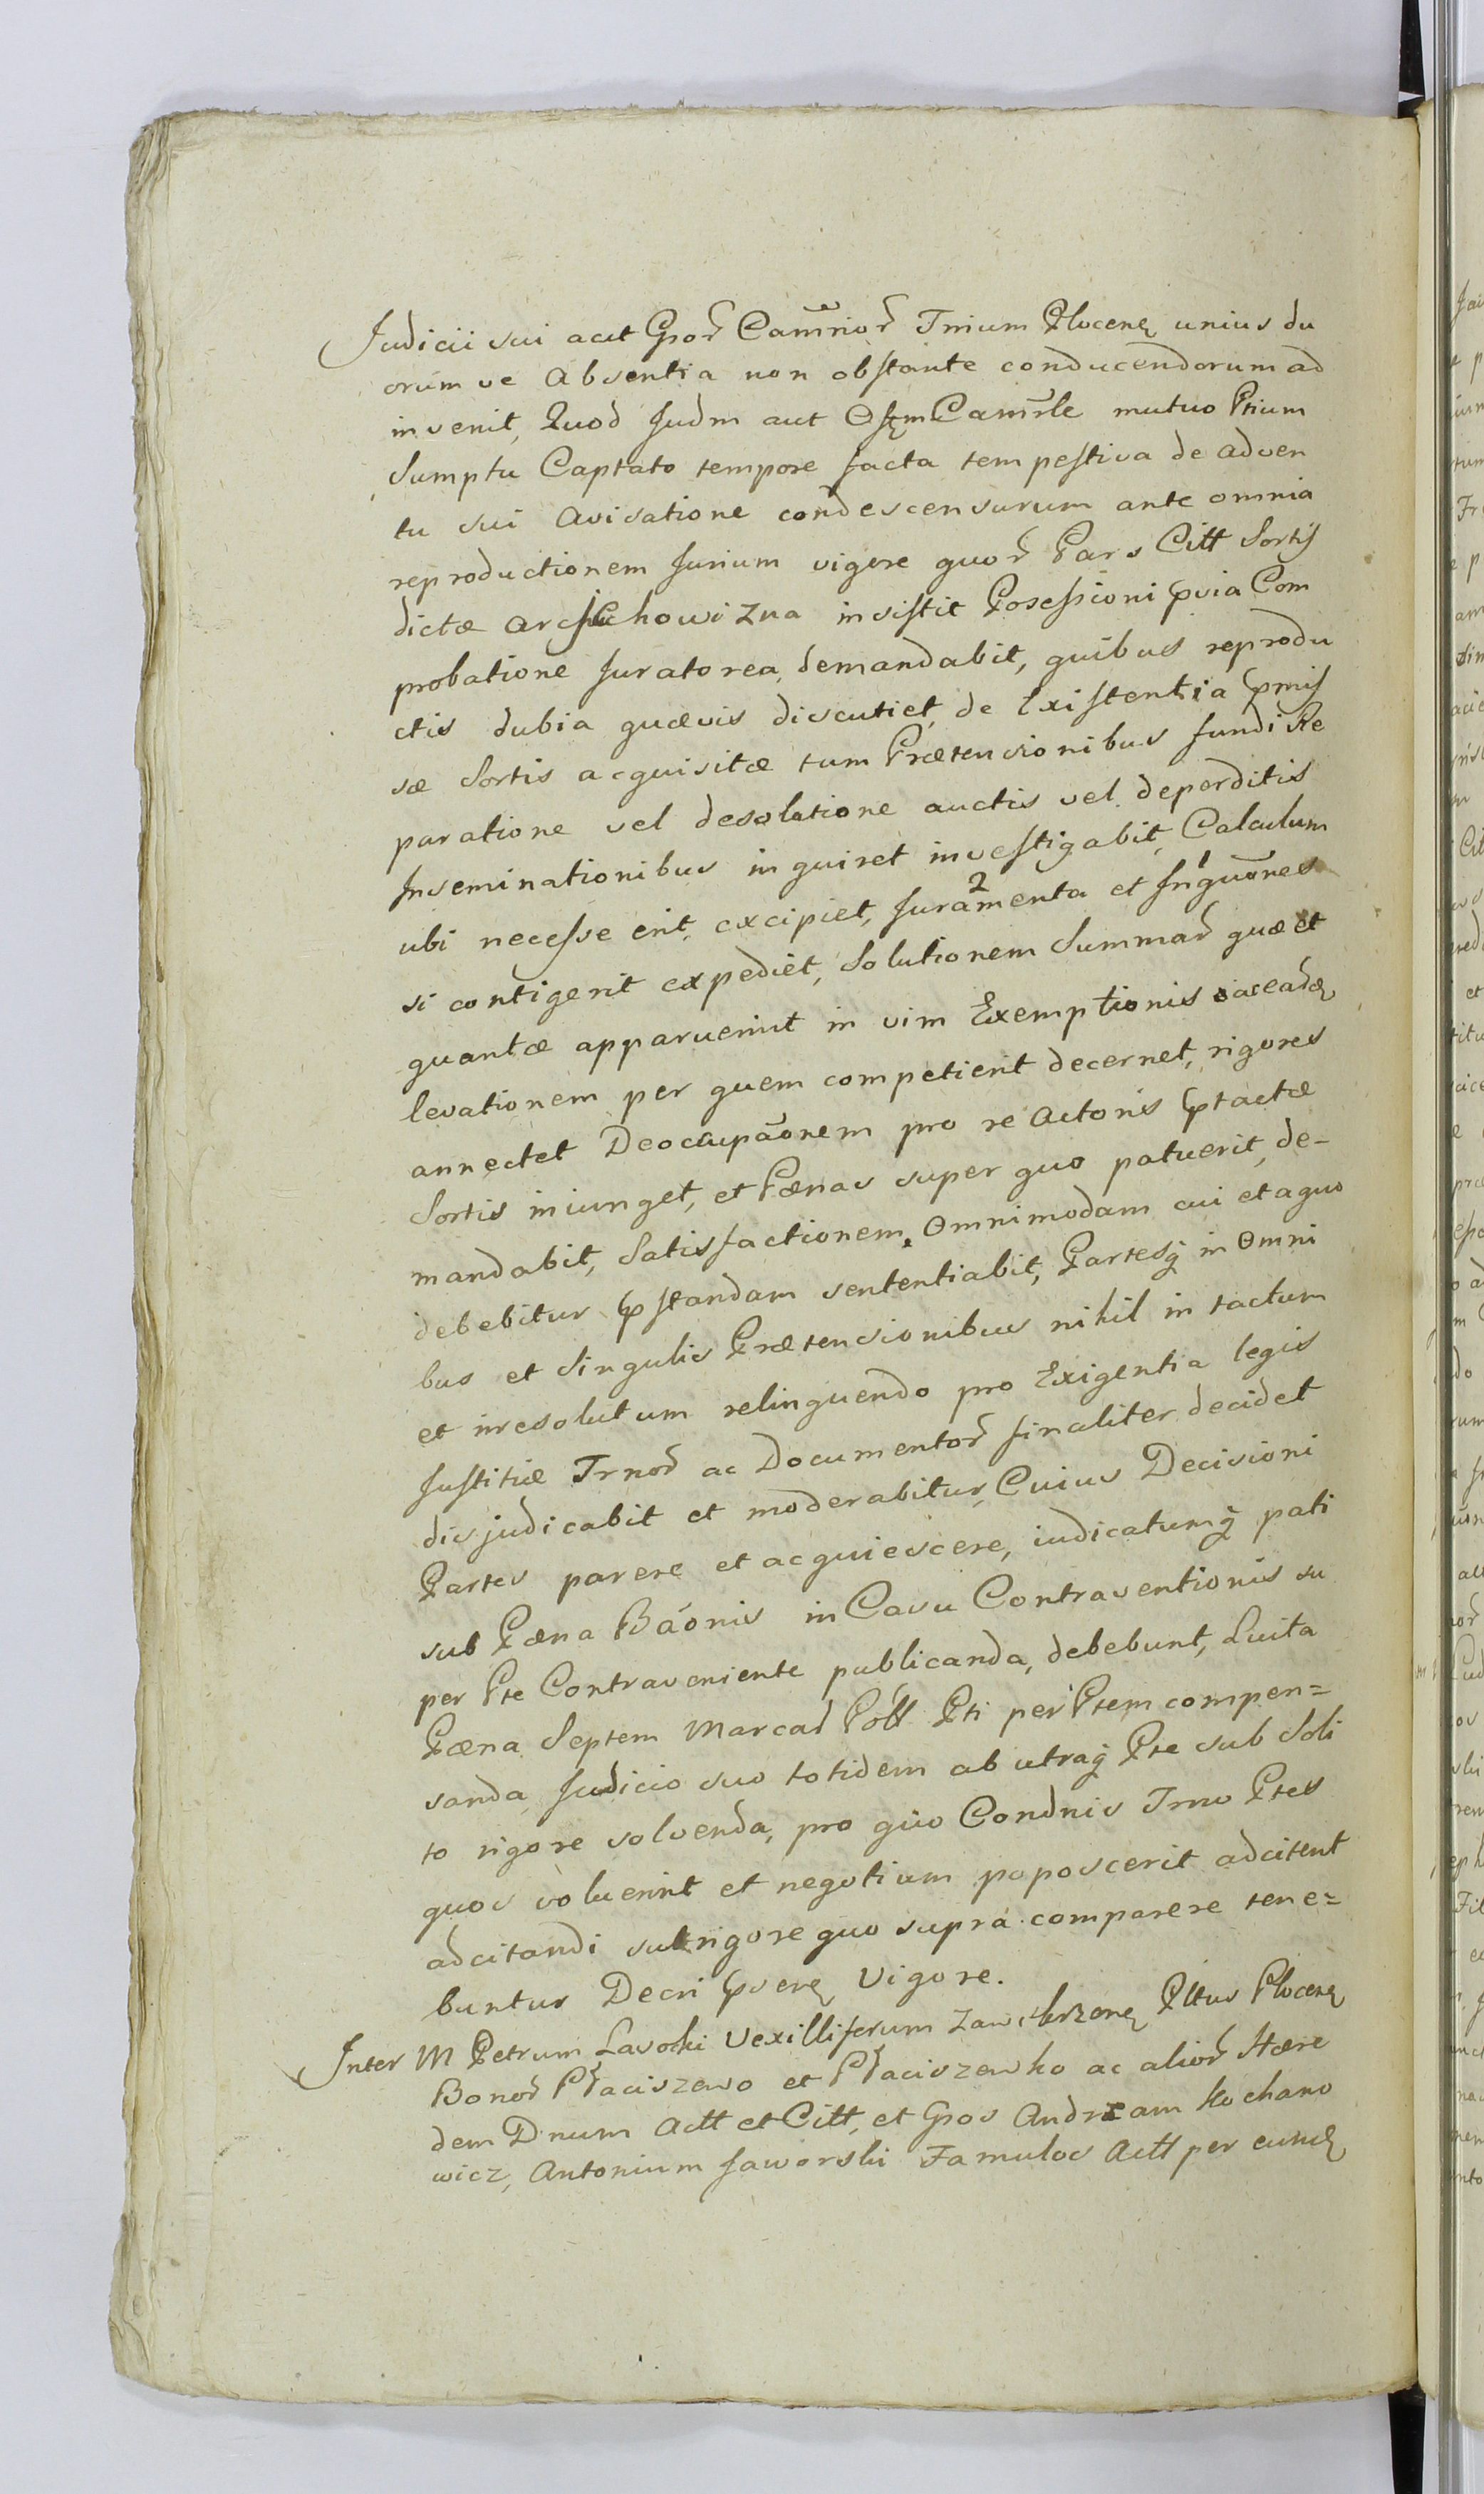 Judicii sui aut Gror Camrior Trium Plocen unius du
orum ve absentia non obstante conducendorum ad
invenit, Quod Judm aut Offm Camrle mutuo Ptium
Sumptu Captato tempore facta tempestiva de adven
tu sui avisatione condescensurum ante omnia
reproductionem Jurium vigore quor Pars Citt Sortis
dictæ Arcichowizna insistit Possessioni prvia Com
probatione Juratorea demandabit, quibus reprodu
ctis dubia quævis discutiet, de Existentia prmis
sæ Sortis acquisitæ tum Prætensionibus fundi Re
paratione vel desolatione auctis vel deperditis
Inseminationibus inquiret investigabit, Calculum
ubi necesse erit, excipiet, Juramenta 2 et Inquones 1
si contigerit expediet, Solutionem Summar quæ et
quantæ apparuerint in vim Exemptionis
levationem per quem competierit decernet, rigores
annectet Deoccupaonem pro re Actoris prtactæ
Sortis iniunget, et Pænas super quo patuerit, de-
mandabit, Satisfactionem Omnimodam cui et a quo
debebitur prstandam sententiabit, Partesq in Omni
bus et Singulis Prætensionibus nihil in tactum
et irresolutum relinquendo pro Exigentia legis
Justitiæ Trnor ac Documentor finaliter decidet
disjudicabit et moderabitur, Cuius Decisioni
Partes parere et acquiescere, iudicatumq pati
sub Pæna Báonis in Casu Contraventionis su
per Pte Contraveniente publicanda, debebunt, Luita
Pæna Septem Marcar Póll Pti per Ptem compen=
sanda Judicio suo totidem ab utraq Pte sub Soli
to rigore solvenda, pro quo Condnis Trno Ptes
quos voluerint et negotium poposcerit adcitent
adcitandi sub rigore quo supra comparere tene=
buntur Decri prsen Vigore.
Inter M Petrum Lasocki Vexilliferum Zawskrzen Pltus Plocen
Bonor Płaciszewo et Płaciszewko ac alior Hære
dem Dnum Actt et Citt, et Gros Andream Kochano
wicz, Antonium Jaworski Famulos Actt per eund